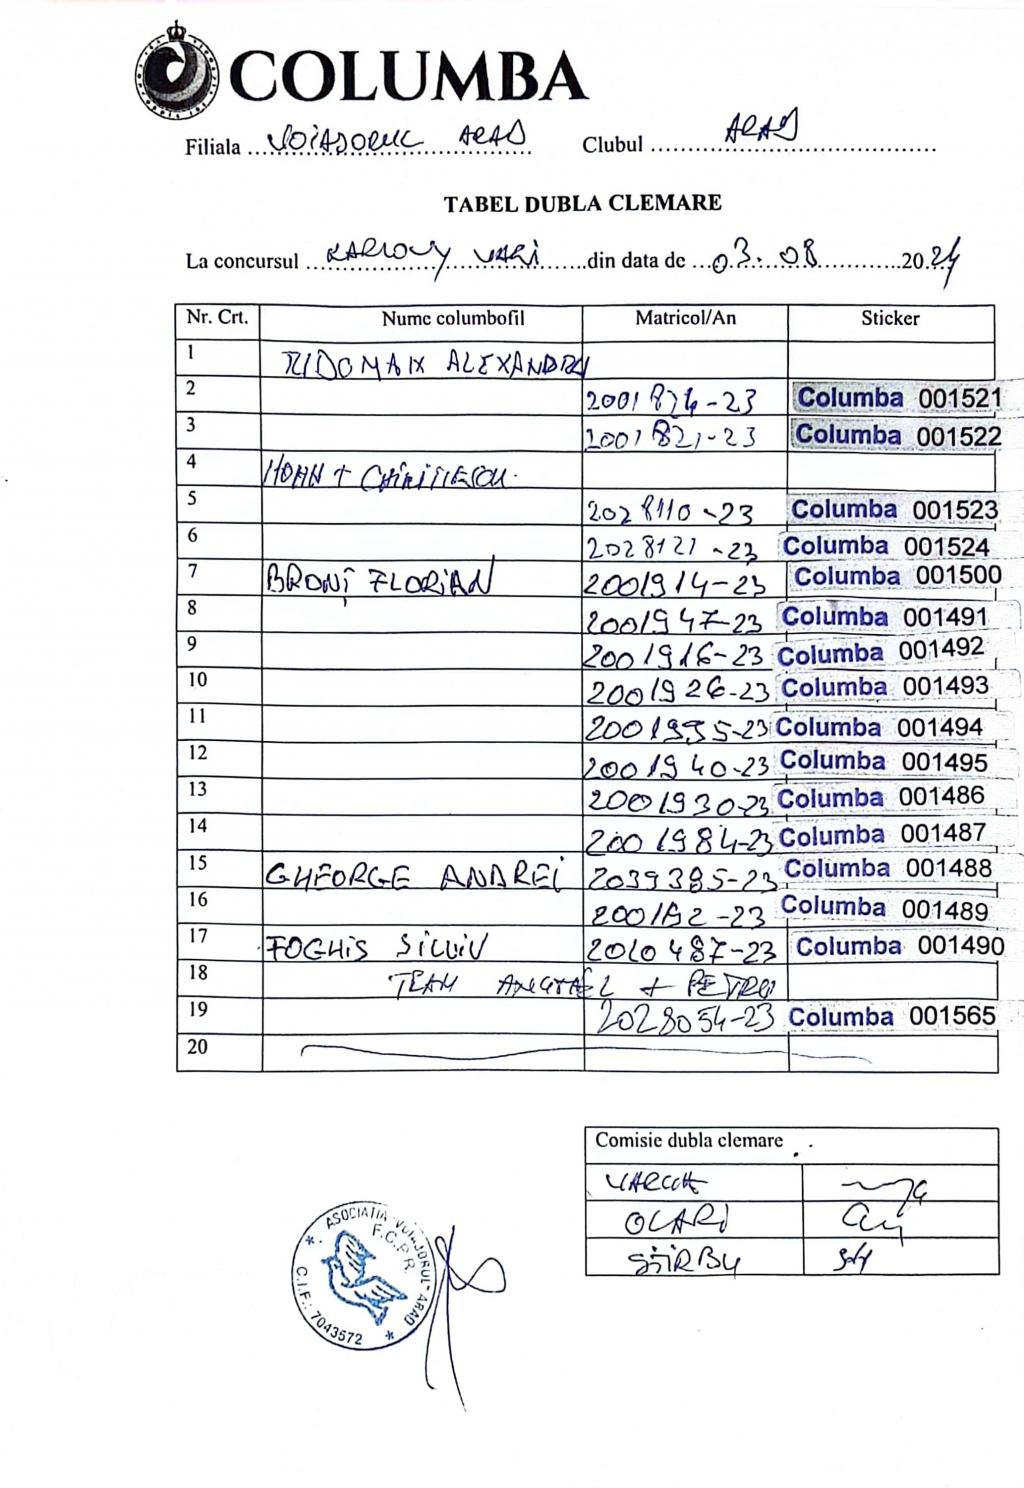 COLUMBA
Filiala ... VOIAJORUL ARAD ... Clubul ... ARAD ...
TABEL DUBLA CLEMARE
La concursul ... KARLOVY VARI ... din data de ... 03. 08 ... 20.24
Nr. Crt. Nume columbofil Matricol/An Sticker
1 ALEXANDRU
2 2001874-23 Columba 001521
3 2001821-23 Columba 001522
4 HOAN +
5 2028110-23 Columba 001523
6 2028121-23 Columba 001524
7 BRONȚ FLORIAN 2001914-23 Columba 001500
8 2001947-23 Columba 001491
9 2001916-23 Columba 001492
10 2001926-23 Columba 001493
11 2001995-23 Columba 001494
12 2001940-23 Columba 001495
13 2001930-23 Columba 001486
14 2001984-23 Columba 001487
15 GHEORGE ANDREI 2039385-23 Columba 001488
16 Columba 001489
17 FOGHIS SILVIU 2010487-23 Columba 001490
18 TEAM + PETRU
19 2028054-23 Columba 001565
20
Comisie dubla clemare
OLARU
ȘTIRBU
ASOCIATIA "VOIAJORUL" ARAD
F.C.P.R.
C.I.F.: 7043572